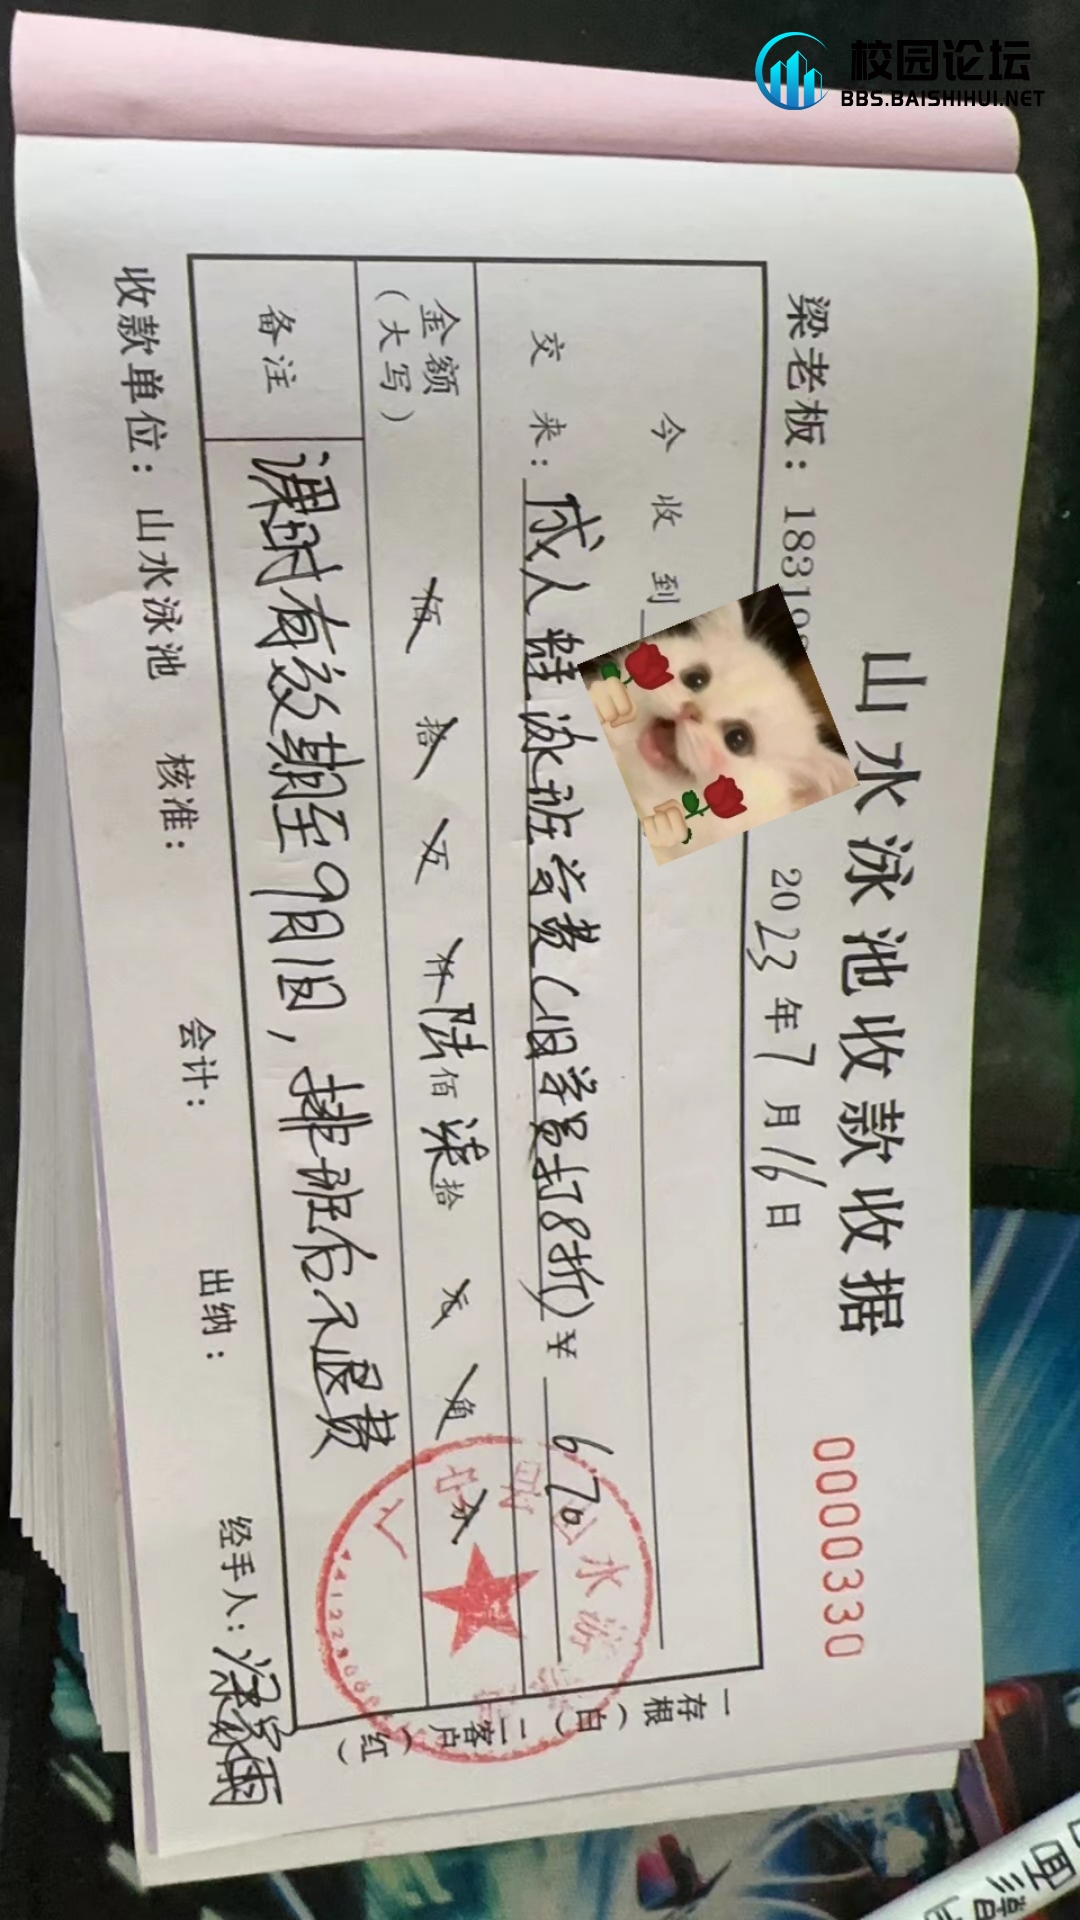 校园论坛
BBS.BAISHIHUI.NET
山水泳池收款收据
0000330
梁老板：18319
2023年7月16日
今收到
交来：成人蛙泳班学费（旧学员打8折）¥670
金额（大写） 佰拾万仟陆佰柒拾元角分
备注 课时有效期至9月1日，排班后不退费
收款单位：山水泳池 核准： 会计： 出纳： 经手人：
一存根（白） 二客户（红）